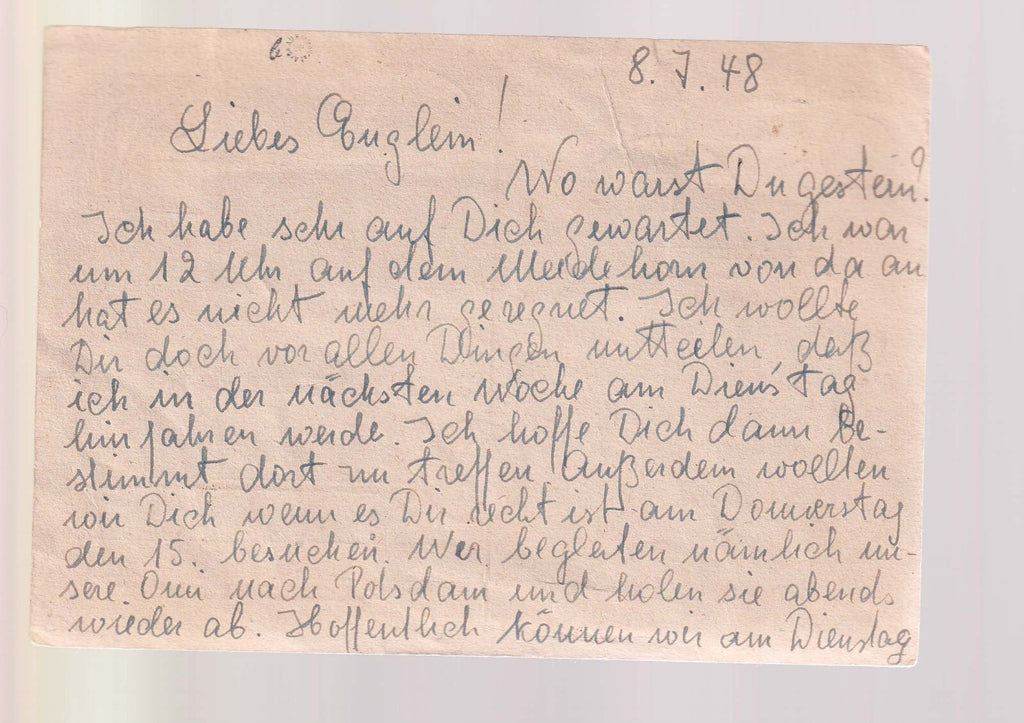 8.7.48
Liebes Englein!
Wo warst Du gestern?
Ich habe sehr auf Dich gewartet. Ich war
um 12 Uhr auf dem von da an
hat es nicht mehr geregnet. Ich wollte
Dir doch vor allen Dingen mitteilen, daß
ich in der nächsten Woche am Dienstag
hinfahren werde. Ich hoffe Dich dann be-
stimmt dort zu treffen. Außerdem wollten
wir Dich wenn es Dir recht ist am Donnerstag
den 15. besuchen. Wir begleiten nämlich un-
sere Omi nach Potsdam und holen sie abends
wieder ab. Hoffentlich können wir am Dienstag